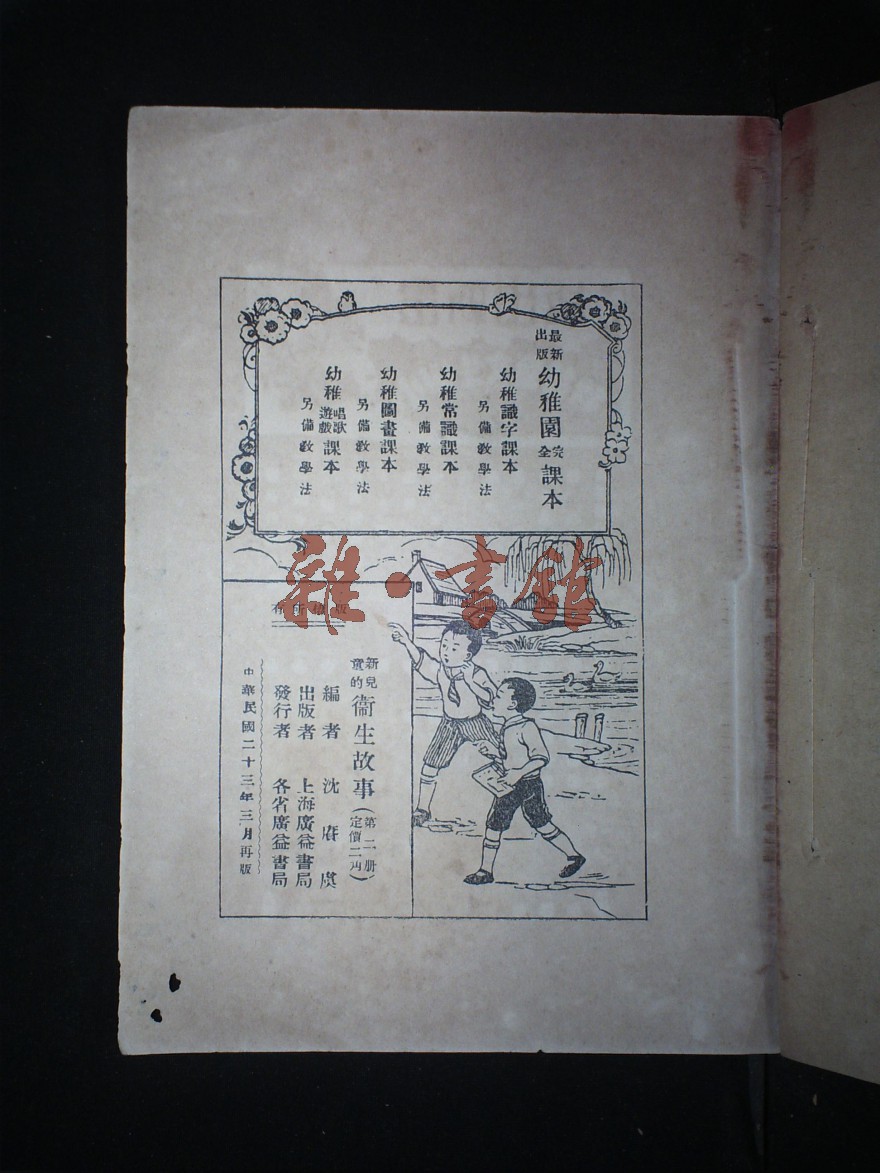 最新出版幼稚園完全課本
幼稚識字課本
另備教學法
幼稚常識課本
另備教學法
幼稚圖畫課本
另備教學法
幼稚唱歌遊戲課本
另備教學法
雜·書館
版權所有
新兒童的衞生故事(第二册 定價二角)
編者 沈 虞
出版者 上海廣益書局
發行者 各省廣益書局
中華民國二十三年三月再版